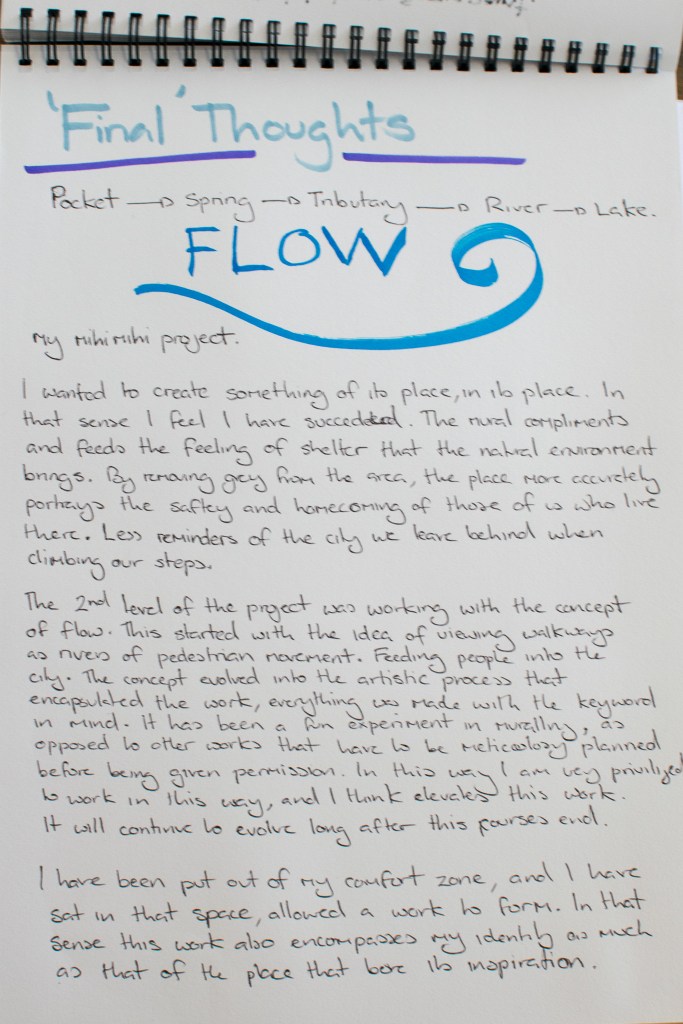 'Final' Thoughts
Pocket → Spring → Tributary → River → Lake.
FLOW
My mihimihi project.
I wanted to create something of its place, in its place. In
that sense I feel I have succeded. The mural compliments
and feeds the feeling of shelter that the natural environment
brings. By removing grey from the area, the place more accuretely
portrays the saftey and homecoming of those of us who live
there. Less reminders of the city we leave behind when
climbing our steps.
The 2nd level of the project was working with the concept
of flow. This started with the idea of viewing walkways
as rivers of pedestrian movement. Feeding people into the
city. The concept evolved into the artistic process that
encapsulated the work, everything was made with the keyword
in mind. It has been a fun experiment in muralling, as
opposed to other works that have to be planned
before being given permission. In this way I am very privilized
to work in this way, and I think elevates this work.
It will continue to evolve long after this courses end.
I have been put out of my comfort zone, and I have
sat in that space, allowed a work to form. In that
sense this work also encompasses my identity as much
as that of the place that bore its inspiration.